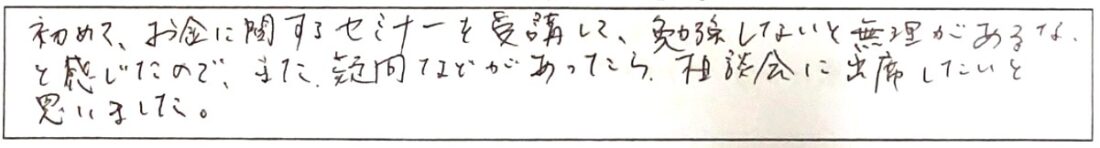 初めて、お金に関するセミナーを受講して、勉強しないと無理があるな、
と感じたので、また、疑問などがあったら、相談会に出席したいと
思いました。